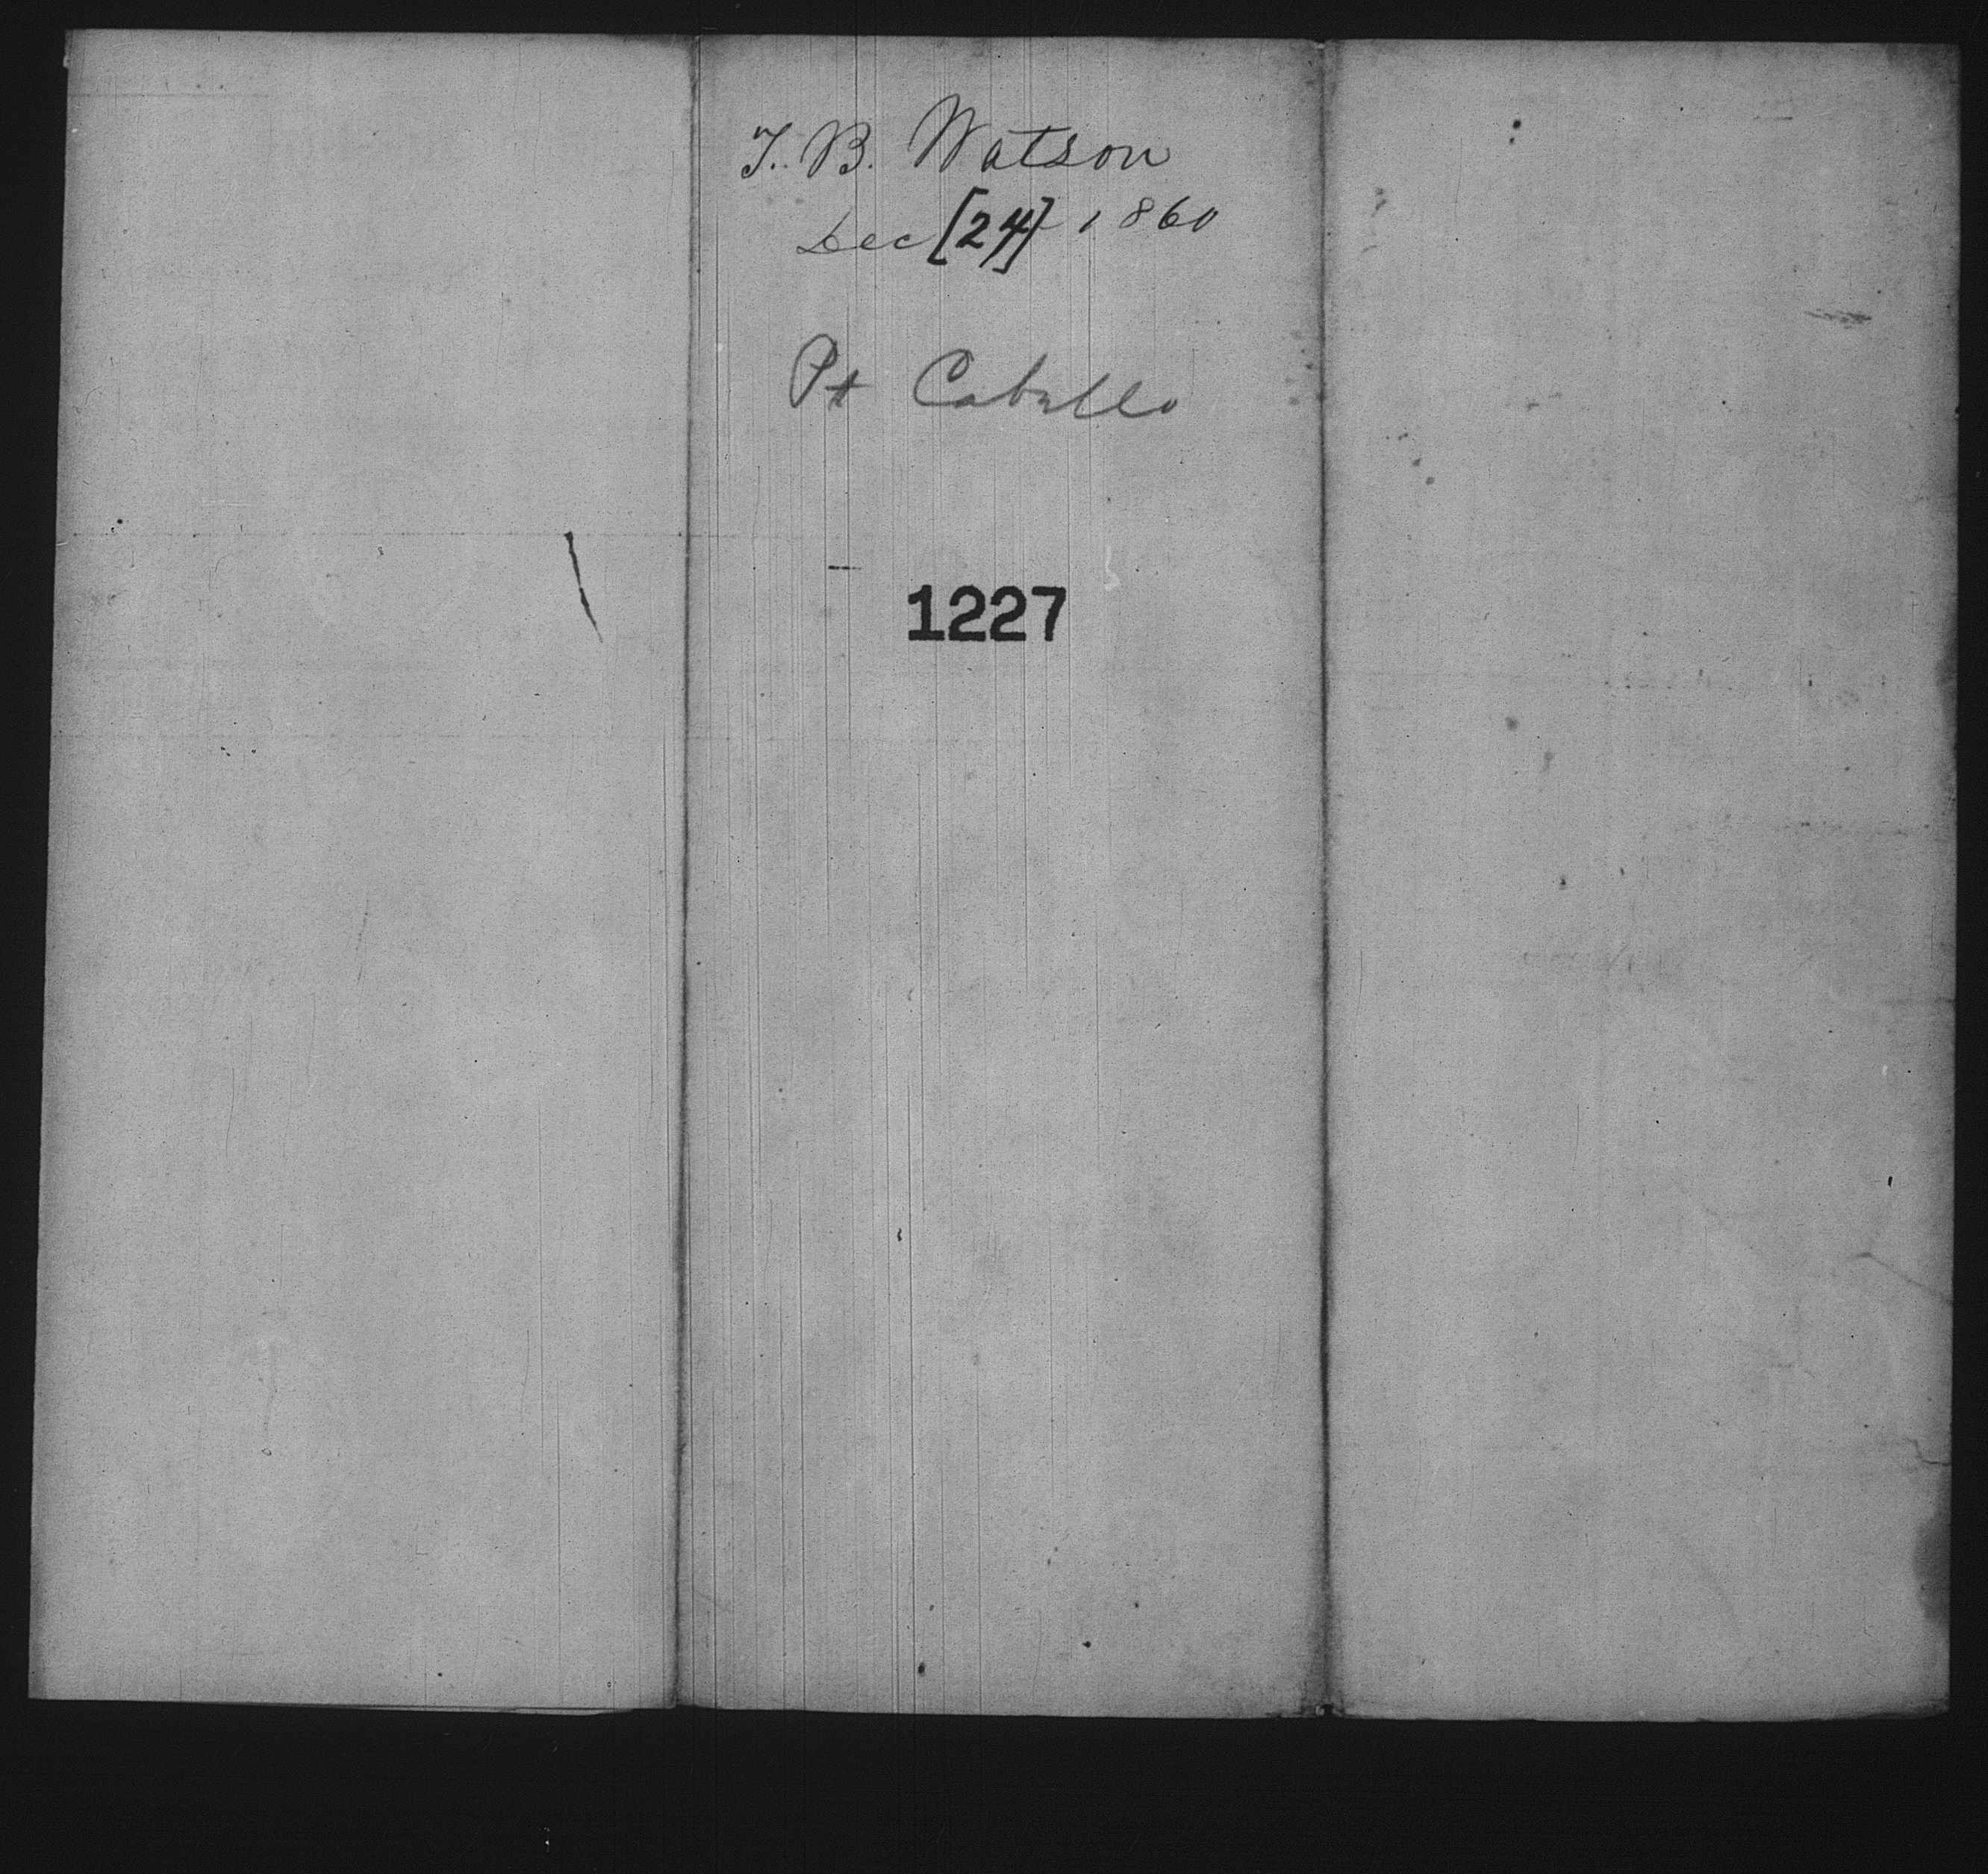 T. B. Watson
Dec [24] 1860
Pt Cabello
1227